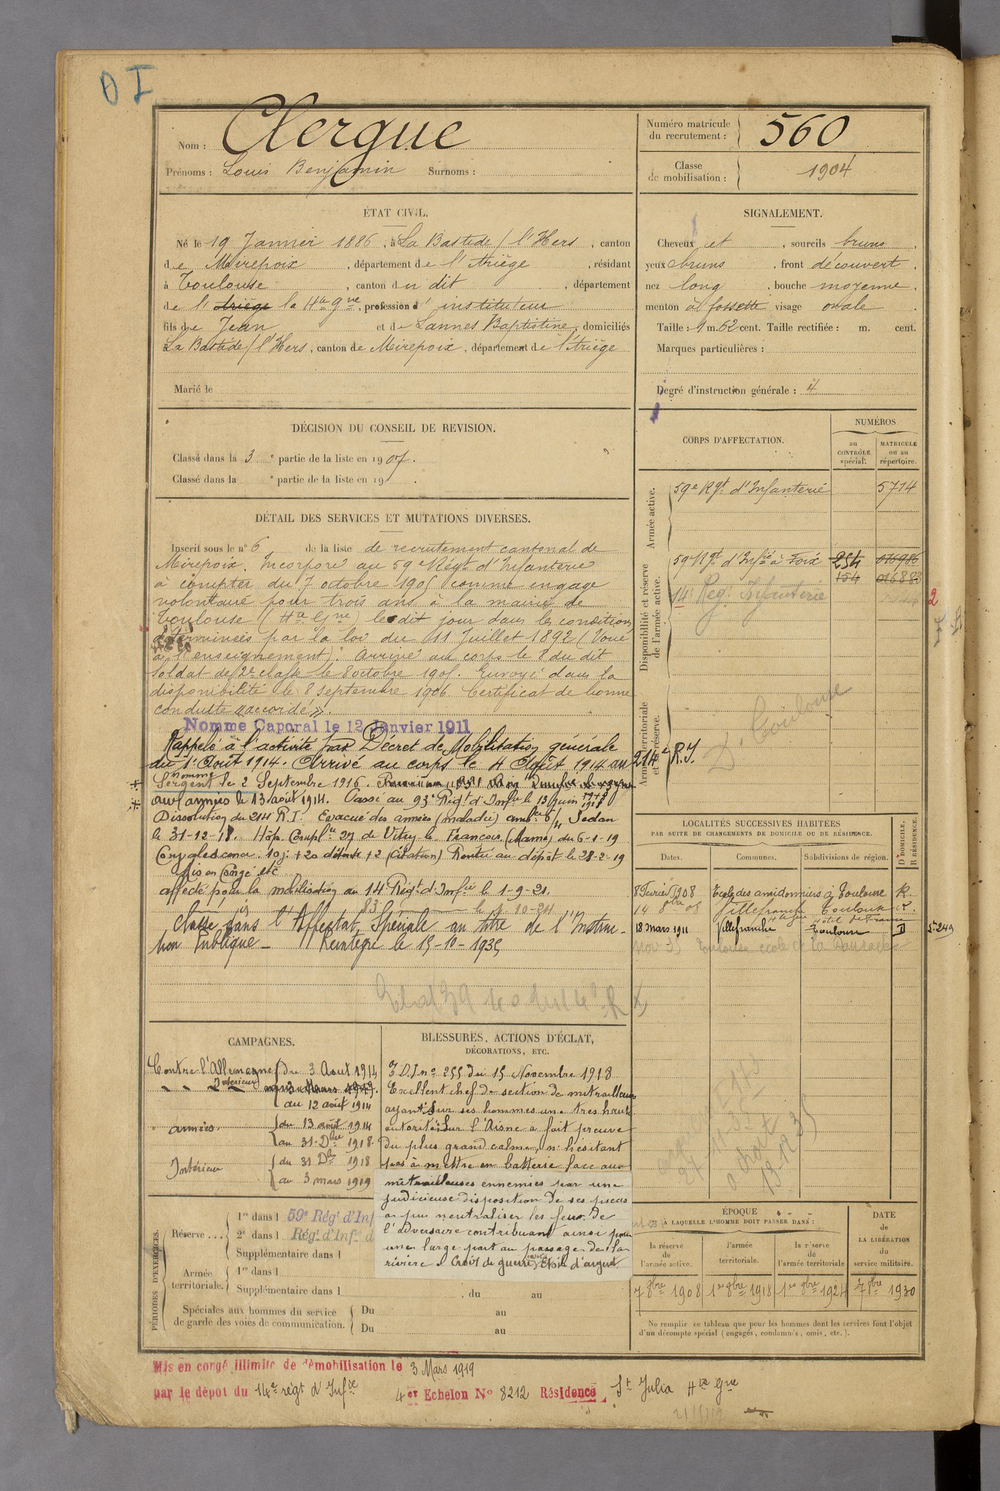 D I
Nom : Clergue
Prénoms : Louis Benjamin Surnoms :
Numéro matricule du recrutement : 560
Classe de mobilisation : 1904
ÉTAT CIVIL.
Né le 19 Janvier 1886, à La Bastide s/ l'Hers, canton
de Mirepoix, département de l'Ariège, résidant
à Toulouse, canton du dit, département
de l'Ariège la Hte Gne, profession d'instituteur
fils de Jean et de Lannes Baptistine, domiciliés
La Bastide s/ l'Hers, canton de Mirepoix, département de l'Ariège
Marié le
SIGNALEMENT.
Cheveux et , sourcils bruns
yeux bruns , front découvert ,
nez long , bouche moyenne ,
menton à fossette visage ovale .
Taille : 1 m. 62 cent. Taille rectifiée : m. cent.
Marques particulières :
Degré d'instruction générale : 4
DÉCISION DU CONSEIL DE REVISION.
Classé dans la 3e partie de la liste en 1907.
Classé dans la e partie de la liste en 19 .
CORPS D'AFFECTATION.
NUMÉROS
au CONTRÔLE spécial.
MATRICULE ou au répertoire.
Armée active.
59e Rgt d'Infanterie 5714
Disponibilité et réserve de l'armée active.
59 Rgt d'Infie à Foix 254
154
14e Reg. Infanterie
Armée territoriale et sa réserve.
214e R.I.
D. Toulouse
DÉTAIL DES SERVICES ET MUTATIONS DIVERSES.
Inscrit sous le n° 6 de la liste de recrutement cantonal de
Mirepoix. Incorporé au 59e Régt d'Infanterie
à compter du 7 octobre 1905 comme engagé
volontaire pour trois ans à la mairie de
Toulouse (Hte Gne) le dit jour dans les conditions
déterminées par la loi du 11 Juillet 1892 (Voué
à l'enseignement). Arrivé au corps le 8 du dit
soldat de 2e classe le 8 octobre 1905. Envoyé dans la
disponibilité le 8 septembre 1906. Certificat de bonne
conduite "accordé".
Nommé Caporal le 12 Janvier 1911
Rappelé à l'activité par Décret de Mobilisation générale
du 1er Août 1914. Arrivé au corps le 4 Août 1914 au
nommé
Sergent le 2 Septembre 1916.
aux armées le 13 août 1914. Passé au 93e Régt d'Infie le 13 juin
Dissolution du 214 R.I. Evacué des armées (malade) Sedan
le 31-12-18. Hôp. Compl. 27 de Vitry le François (Marne) du 6-1-19
10 j. + 20 détente + 2 (citation) Rentré au dépôt le 28-2-19
Mis en Congé etc
affecté pour la mobilisation au 14 Régt d'Infie le 1-9-21.
Classé dans l'Affectat. Spéciale au titre de l'Instruc-
tion Publique. Réintégré le 15-10-1935
LOCALITÉS SUCCESSIVES HABITÉES
PAR SUITE DE CHANGEMENTS DE DOMICILE OU DE RÉSIDENCE.
Dates. Communes. Subdivisions de région. D. DOMICILE. R. RÉSIDENCE.
8 Février 1908 Ecole des amidonniers à Toulouse R.
Villefranche Toulouse R.
18 mars 1911 Villefranche Toulouse D
CAMPAGNES.
Contre l'Allemagne du 3 Août 1914
Intérieur
au 12 août 1914
armées du 13 août 1914
au 31 Dbre 1918
Intérieur du 31 Dbre 1918
au 3 mars 1919
BLESSURES, ACTIONS D'ÉCLAT,
DÉCORATIONS, ETC.
I.D.J. n° 255 du 15 Novembre 1918
Excellent chef de section de mitrailleuses
ayant sur ses hommes une très haute
autorité. Sur l'Aisne a fait preuve
du plus grand calme, n'hésitant
pas à mettre en batterie face aux
mitrailleuses ennemies par une
judicieuse disposition de ses pièces
a pu neutraliser les feux de
l'adversaire contribuant ainsi pour
une large part au passage de la
rivière. Croix de guerre Etoile d'argent.
PÉRIODES D'EXERCICES.
Réserve ... 1re dans l 59e Rég. d'Inf
2e dans l Rég. d'Inf. d
Supplémentaire dans l
Armée territoriale. 1re dans l
Supplémentaire dans l , du au
Spéciales aux hommes du service Du au
de garde des voies de communication. Du au
ÉPOQUE
À LAQUELLE L'HOMME DOIT PASSER DANS :
la réserve de l'armée active. l'armée territoriale. la réserve de l'armée territoriale
DATE DE LA LIBÉRATION du service militaire.
7 8bre 1908 1er 8bre 1918 1er 8bre 1924 7 8bre 1930
Ne remplir ce tableau que pour les hommes dont les services font l'objet
d'un décompte spécial (engagés, condamnés, omis, etc.).
Mis en congé illimité de démobilisation le 3 Mars 1919
par le dépôt du 14e régt d'Infie 4er Echelon N° 8212 Résidence St Julia Hte Gne